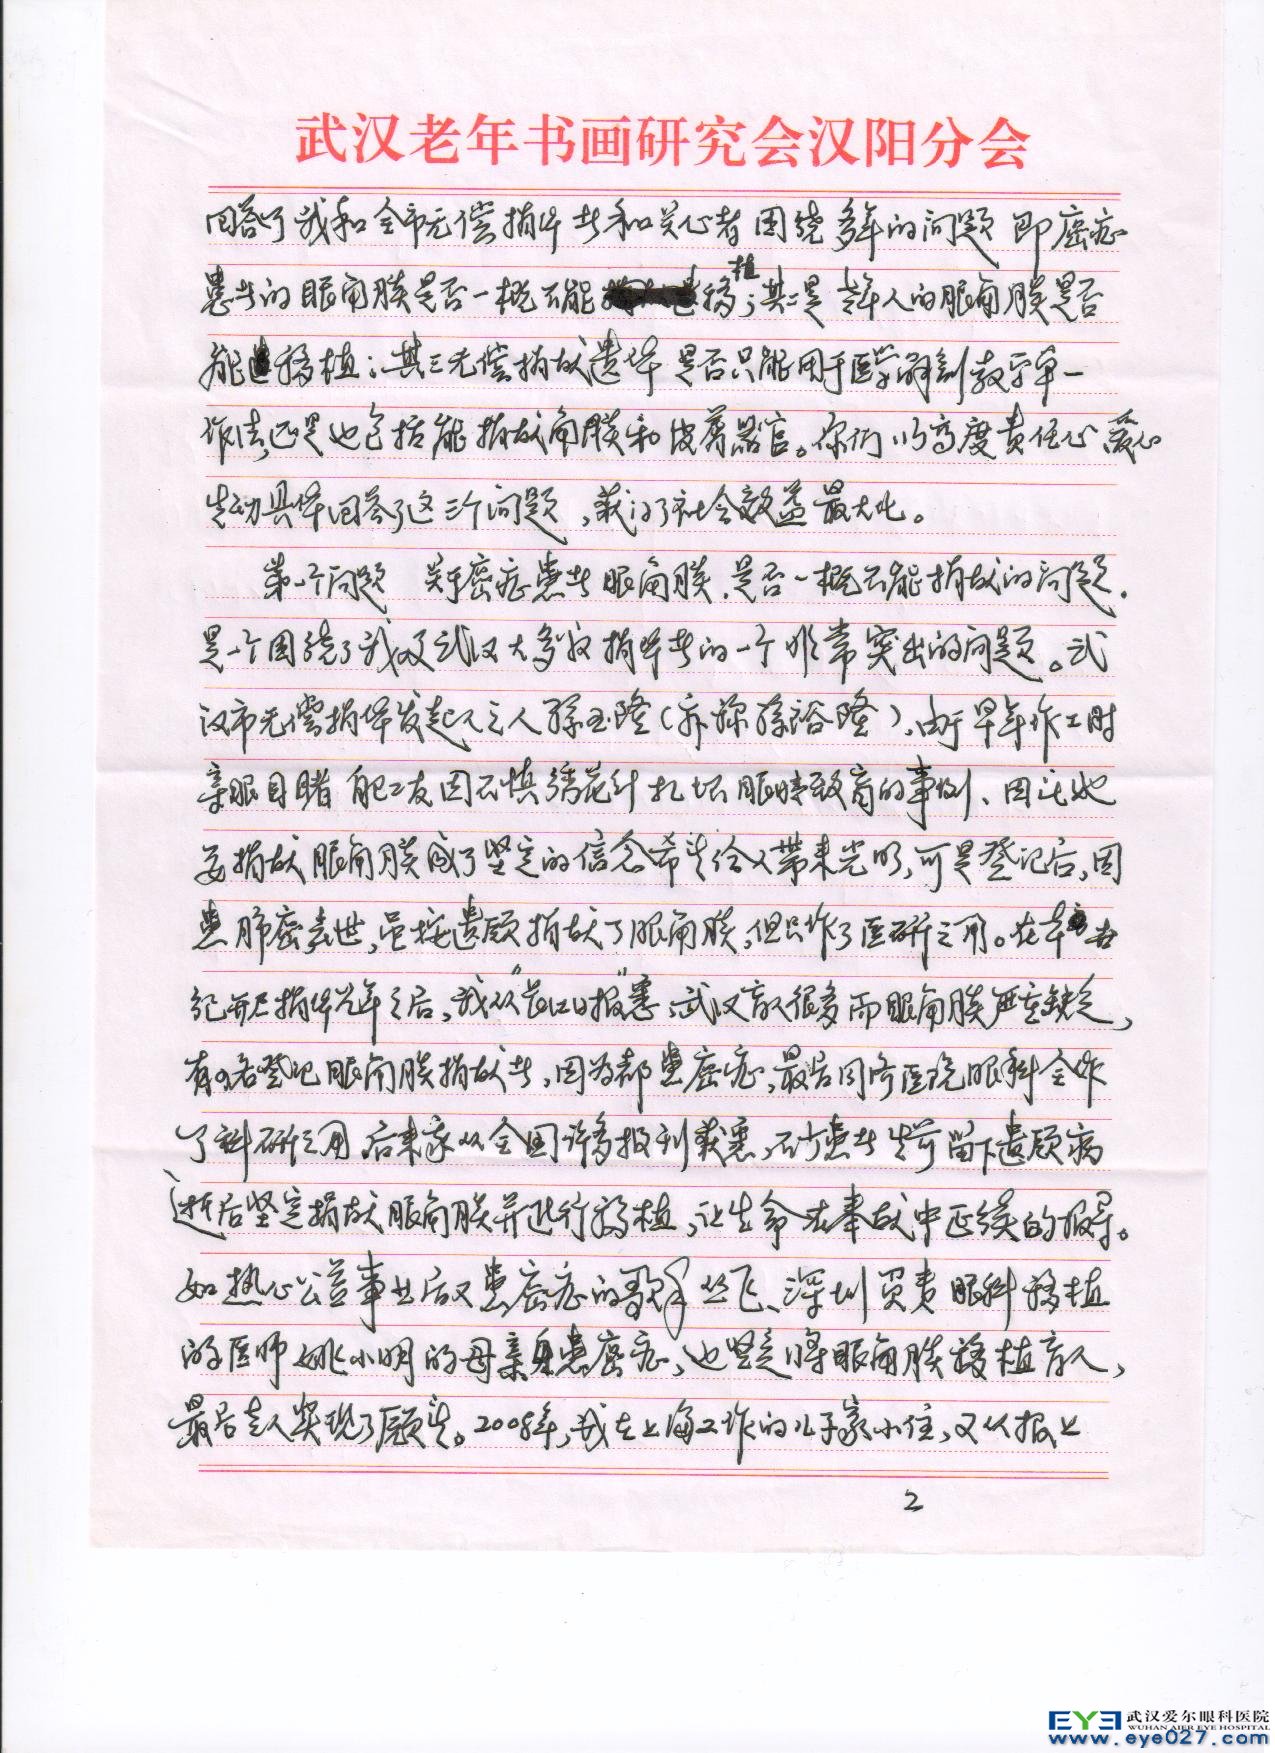 武汉老年书画研究会汉阳分会
回答了我和全市无偿捐体者和关心者围绕多年的问题 即癌症
患者的眼角膜是否一概不能移植；其二是老年人的眼角膜是否
能移植；其三无偿捐献遗体是否只能用于医学解剖教学单一
作法，还是也包括能捐献角膜和皮肤器官。你们以高度责任心 爱心
生动具体回答了这三个问题，获得了社会效益最大化。
第一个问题 关于癌症患者眼角膜，是否一概不能捐献的问题，
是一个围绕了我及武汉大多数捐体者的一个非常突出的问题。武
汉市无偿捐体发起人之人孙玉隆（亦称孙裕隆），由于早年作工时
亲眼目睹 工友因不慎绣花针扎坏眼睛致盲的事例、因此她
要捐献眼角膜成了坚定的信念希望给人带来光明，可是登记后，因
患肺癌去世，虽按遗愿捐献了眼角膜，但只作了医研之用。在
纪 捐体 年之后，我从“长江日报”悉，武汉盲人很多而眼角膜严重缺乏，
有 名登记眼角膜捐献者，因为都患癌症，最后同济医院眼科全作
了科研之用 后来 从全国许多报刊获悉，不少患者生前留下遗愿病
逝后坚定捐献眼角膜并进行移植，让生命在奉献中延续的报导。
如热心公益事业后又患癌症的歌手丛飞、深圳负责眼科移植
的医师姚小明的母亲身患癌症，也坚定将眼角膜移植盲人，
最后老人实现了愿望。2008年，我在上海工作的儿子家小住，又从报上
2
EYE 武汉爱尔眼科医院
WUHAN AIER EYE HOSPITAL
www.eye027.com